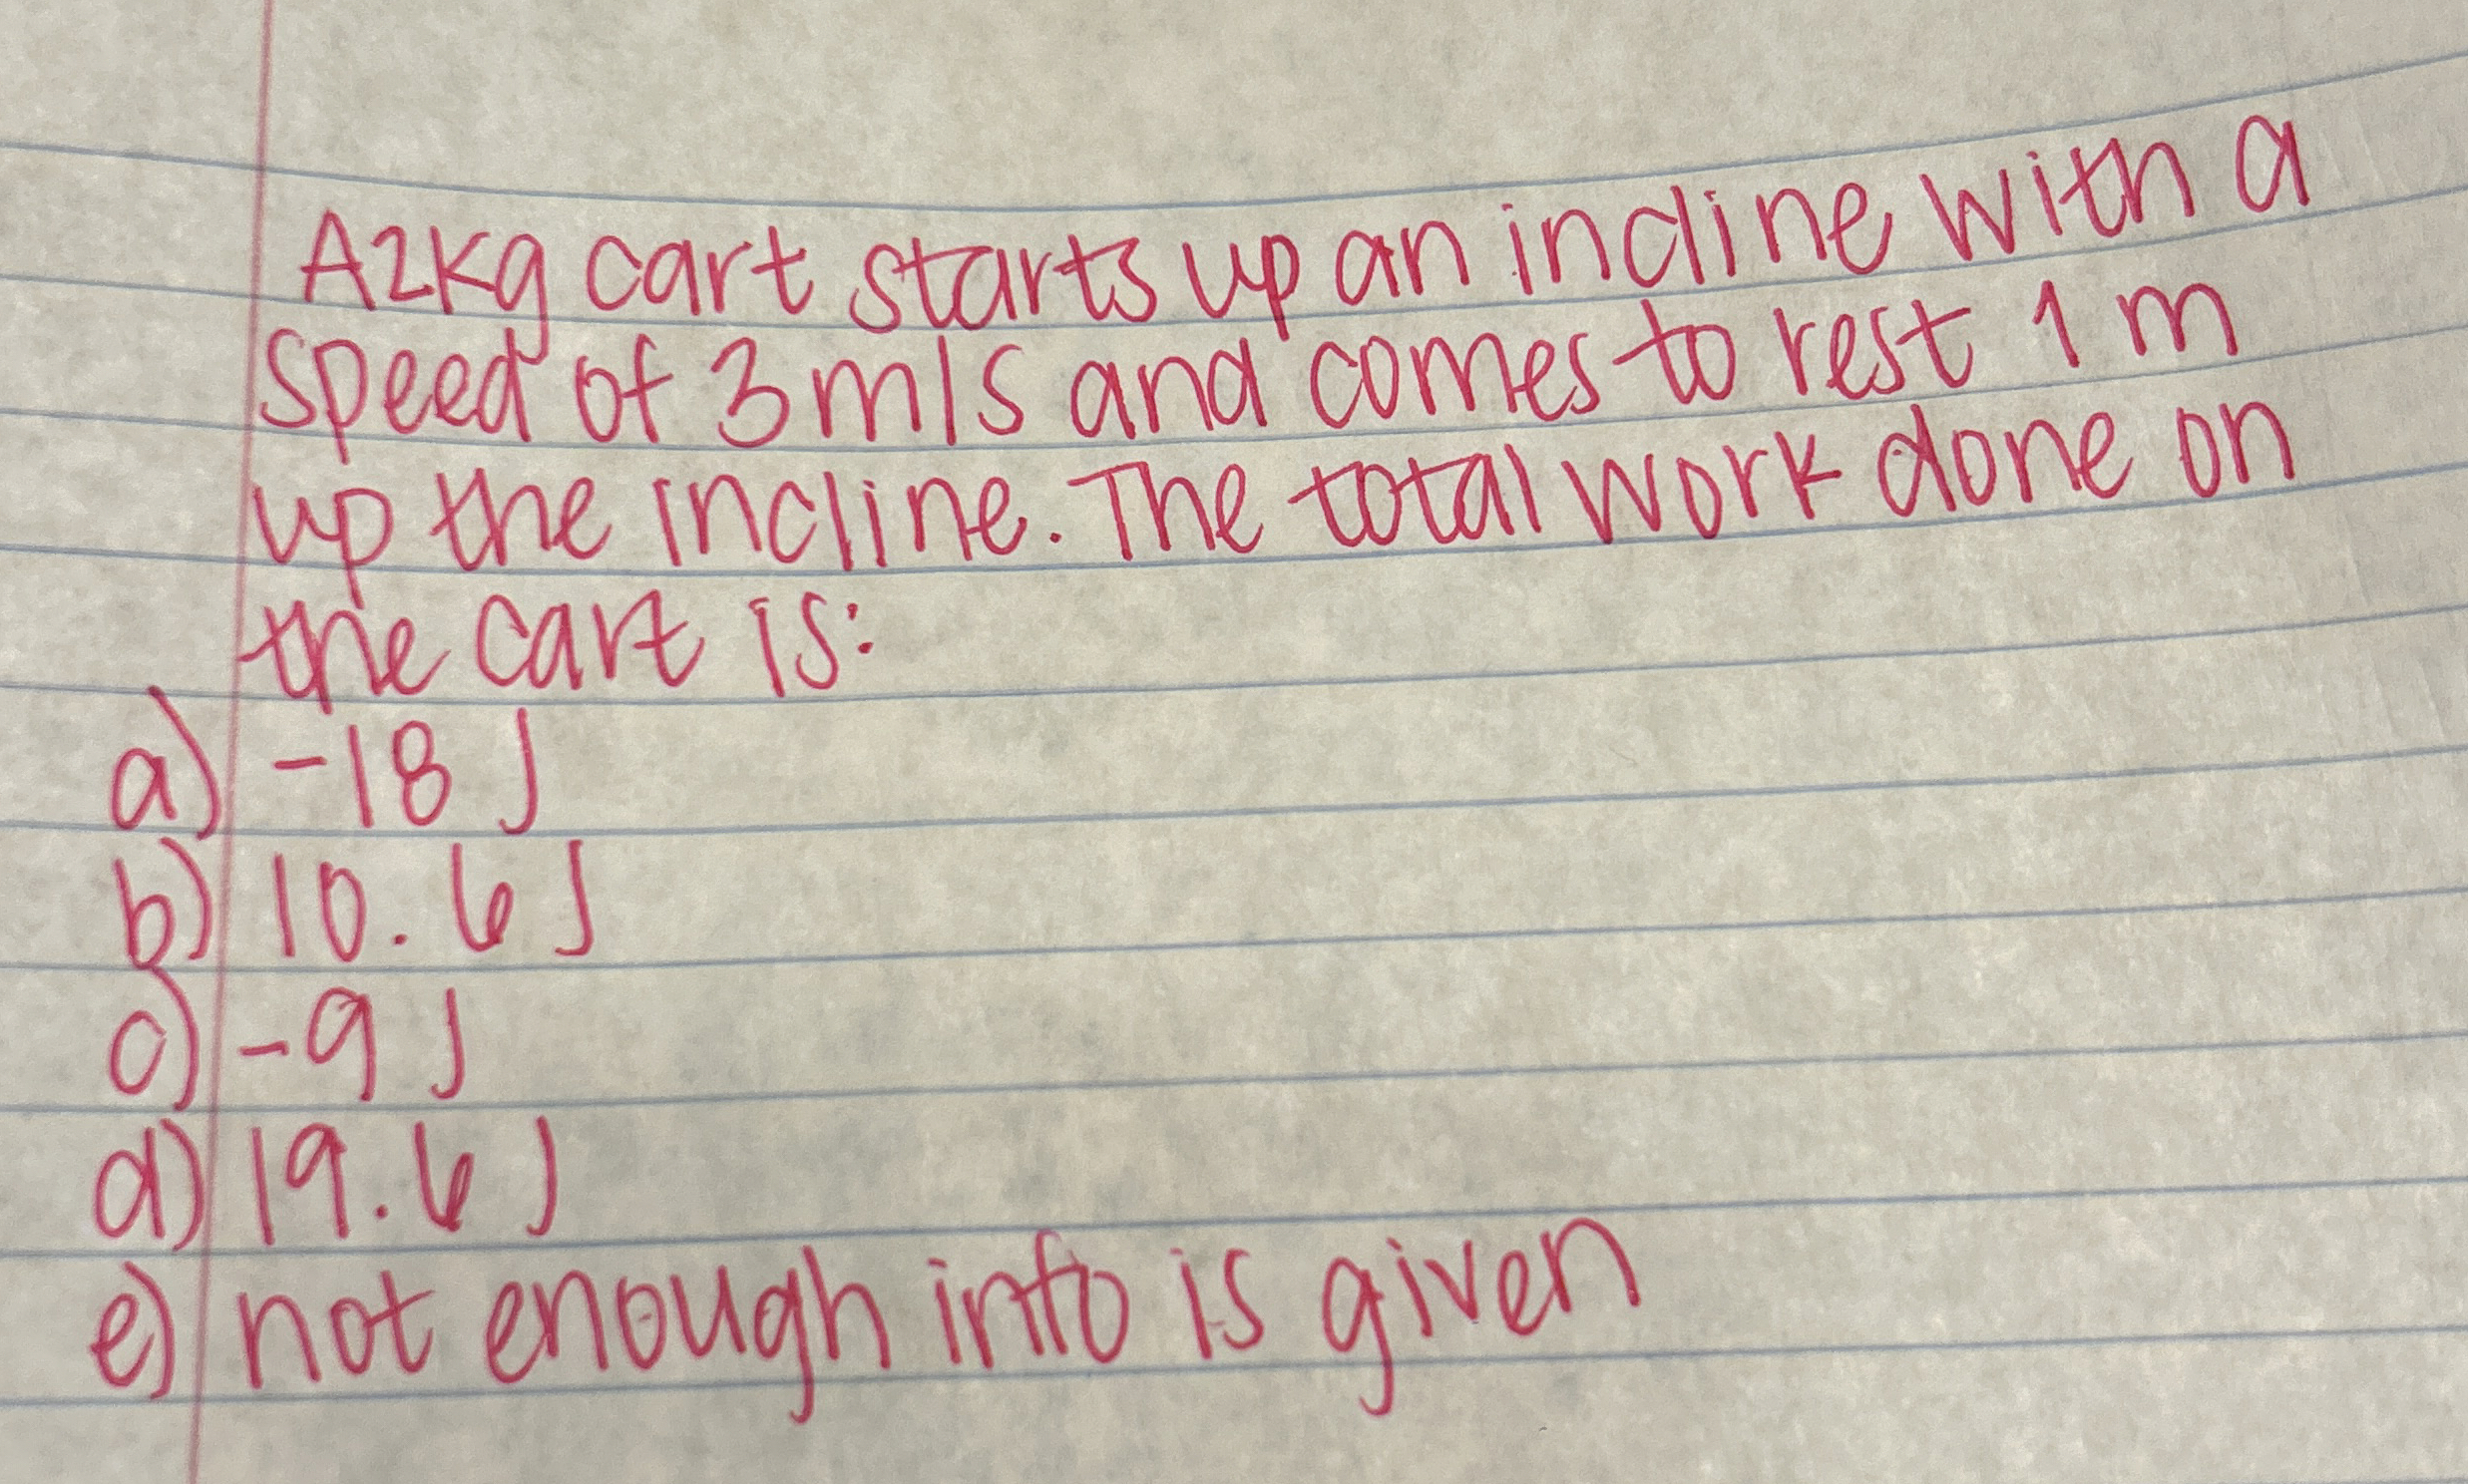 A 2kg cart starts up an incline with a
speed of 3 m/s and comes to rest 1 m
up the incline. The total work done on
the cart is:
a) -18 J
b) 10.6 J
c) -9 J
d) 19.6 J
e) not enough info is given